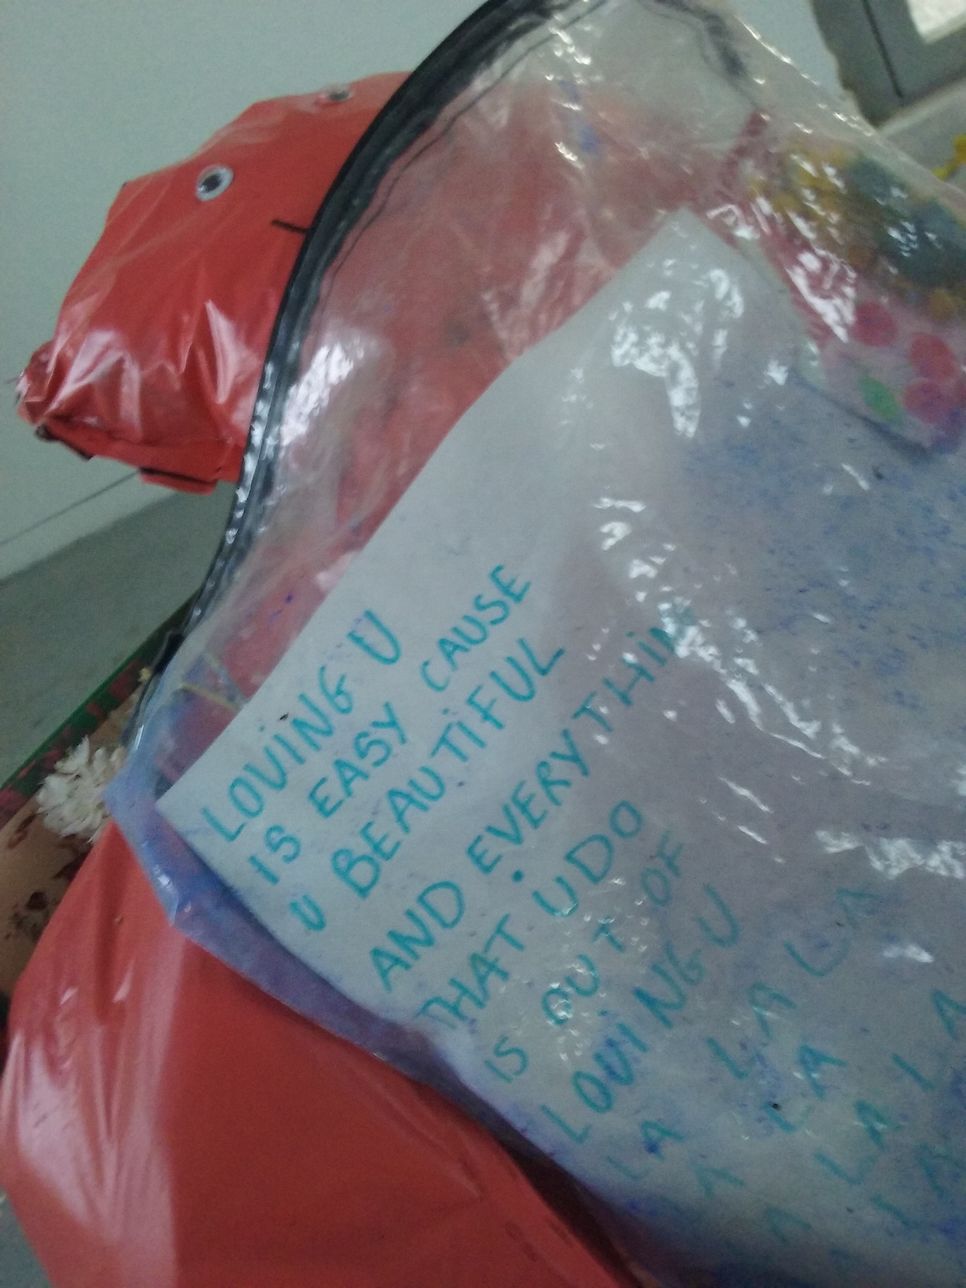 LOVING U
IS EASY CAUSE
U BEAUTIFUL
AND EVERYTHING
THAT U DO
IS OUT OF
LOVING U
LA LA LA